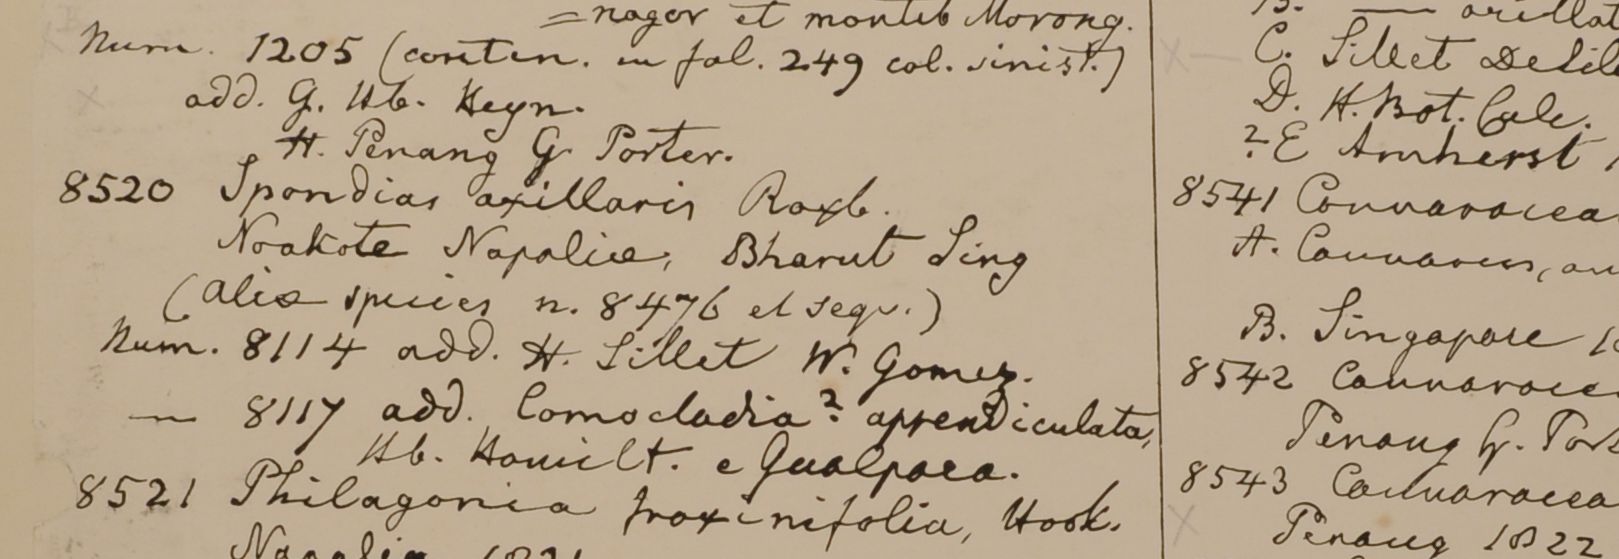 = nagor et montib Morong.
Num. 1205 (conten. in fol. 249 col. sinist.)
add. G. Hb. Heyn.
H. Penang G. Porter.
8520 Spondias axillaris Roxb.
Noakote Napaliæ, Bharut Sing
(aliæ species n. 8476 et sequ.)
Num. 8114 add. H. Sillet W. Gomez.
— 8117 add. Comocladia? appendiculata,
Hb. Hamilt. e Gualpara.
8521 Philagonia fraxinifolia, Hook.
Napalia 1821
C. Sillet DeSil
D. H. Bot. Calc.
? E Amherst
8541 Connaracea
A. Connarus,
B. Singapore
8542 Connarace
Penang G. Port
8543 Connaracea
Penang 1822